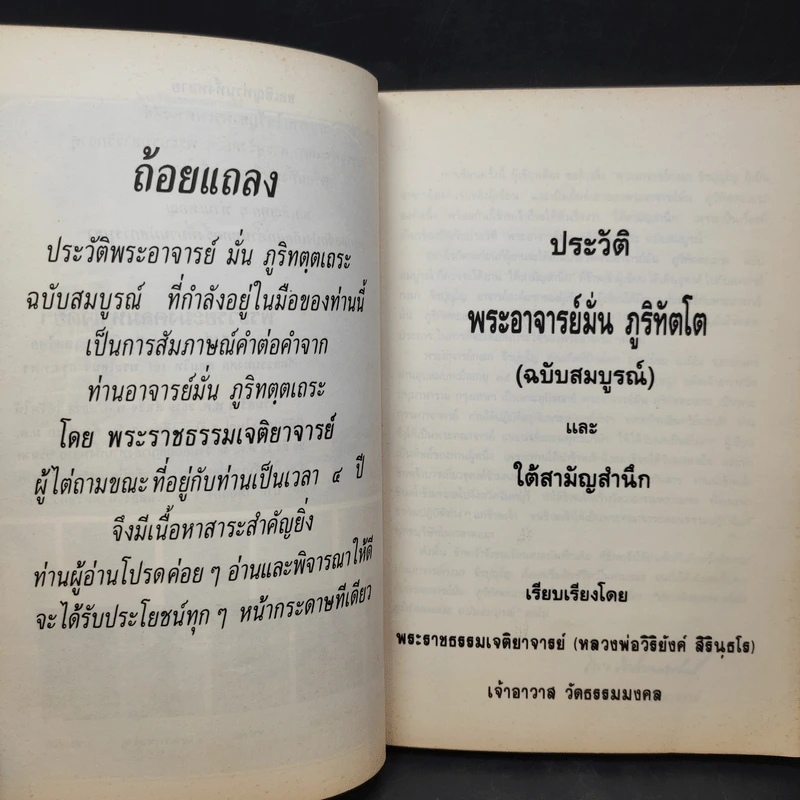 ถ้อยแถลง
ประวัติพระอาจารย์ มั่น ภูริทตฺตเถระ
ฉบับสมบูรณ์ ที่กำลังอยู่ในมือของท่านนี้
เป็นการสัมภาษณ์คำต่อคำจาก
ท่านอาจารย์มั่น ภูริทตฺตเถระ
โดย พระราชธรรมเจติยาจารย์
ผู้ไต่ถามขณะที่อยู่กับท่านเป็นเวลา ๔ ปี
จึงมีเนื้อหาสาระสำคัญยิ่ง
ท่านผู้อ่านโปรดค่อย ๆ อ่านและพิจารณาให้ดี
จะได้รับประโยชน์ทุก ๆ หน้ากระดาษทีเดียว
ประวัติ
พระอาจารย์มั่น ภูริทัตโต
(ฉบับสมบูรณ์)
และ
ใต้สามัญสำนึก
เรียบเรียงโดย
พระราชธรรมเจติยาจารย์ (หลวงพ่อวิริยังค์ สิรินฺธโร)
เจ้าอาวาส วัดธรรมมงคล